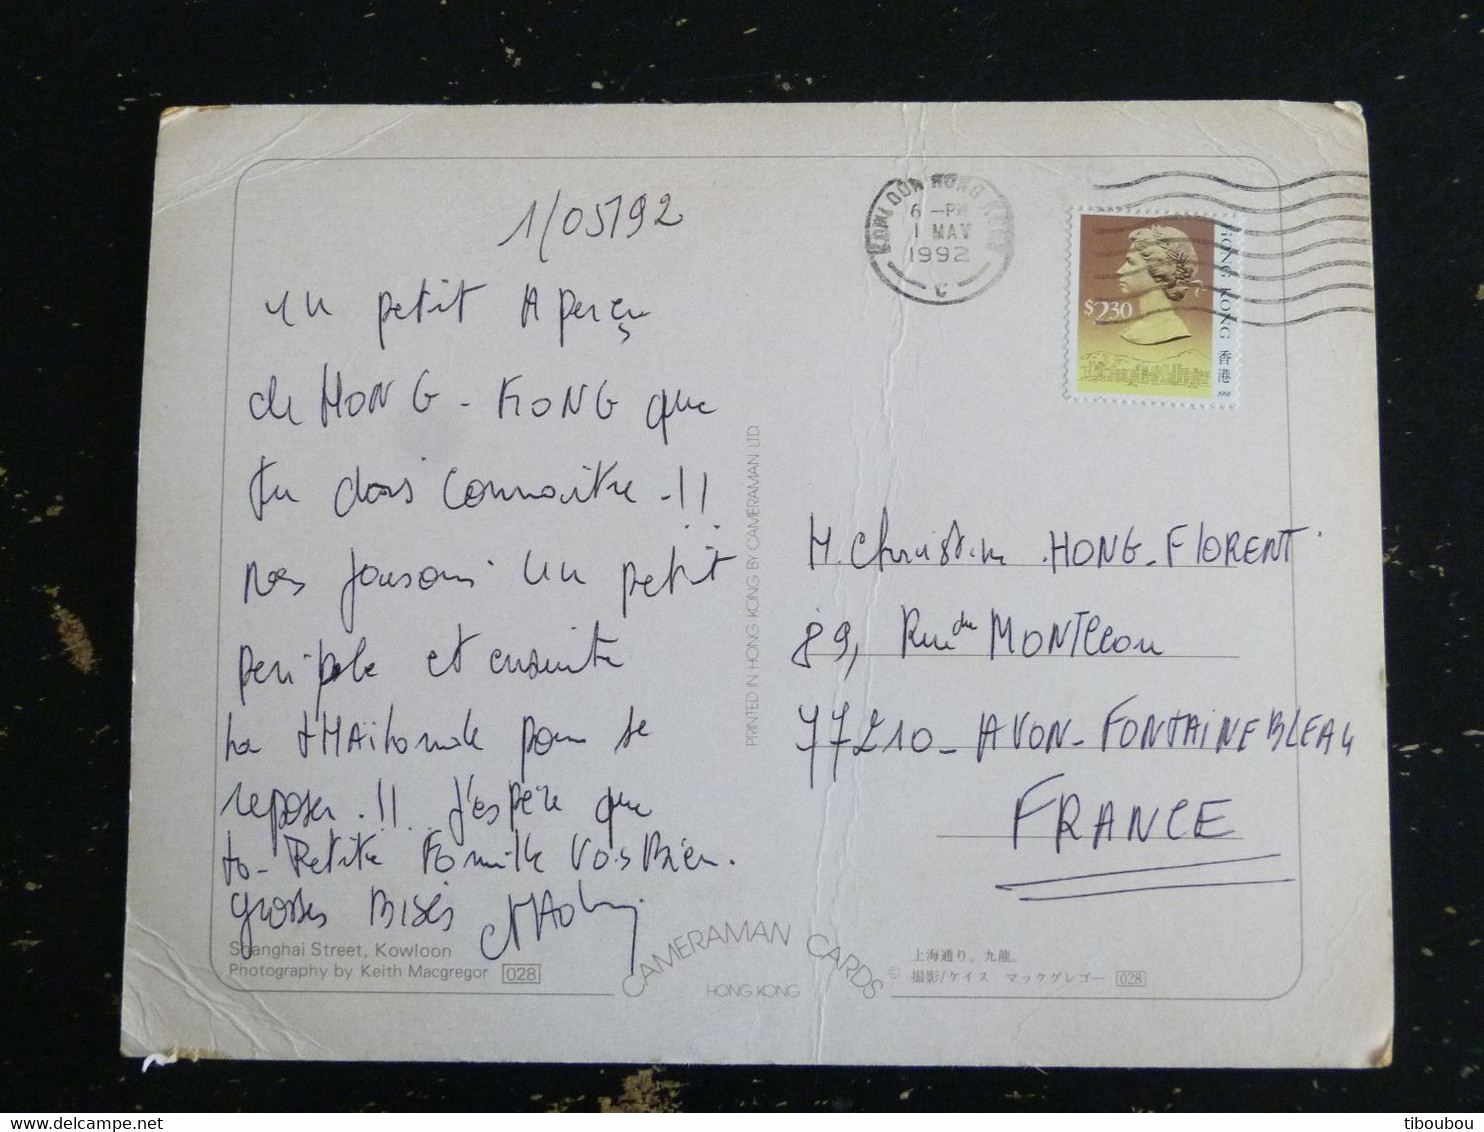 1/05/92
un petit Aperçu
de HONG-KONG que
tu dois connaitre-!!
nous faisons un petit
periple et ensuite
la tHAïlande pour se
reposer.!! J'espère que
ta Petite Famille Vas Bien.
grosses BISES
KOWLOON HONG KONG
6 -PM
1 MAY
1992
C
HONG KONG 香港
$2.30
1991
M. Christian HONG-FLORENT
89, Rue du MONTCEAU
77210-AVON-FONTAINEBLEAU
FRANCE
PRINTED IN HONG KONG BY CAMERAMAN LTD
Shanghai Street, Kowloon
Photography by Keith Macgregor 028
CAMERAMAN CARDS
HONG KONG
上海通り。九龍。
© 撮影/ケイス マックグレゴー 028
tiboubou